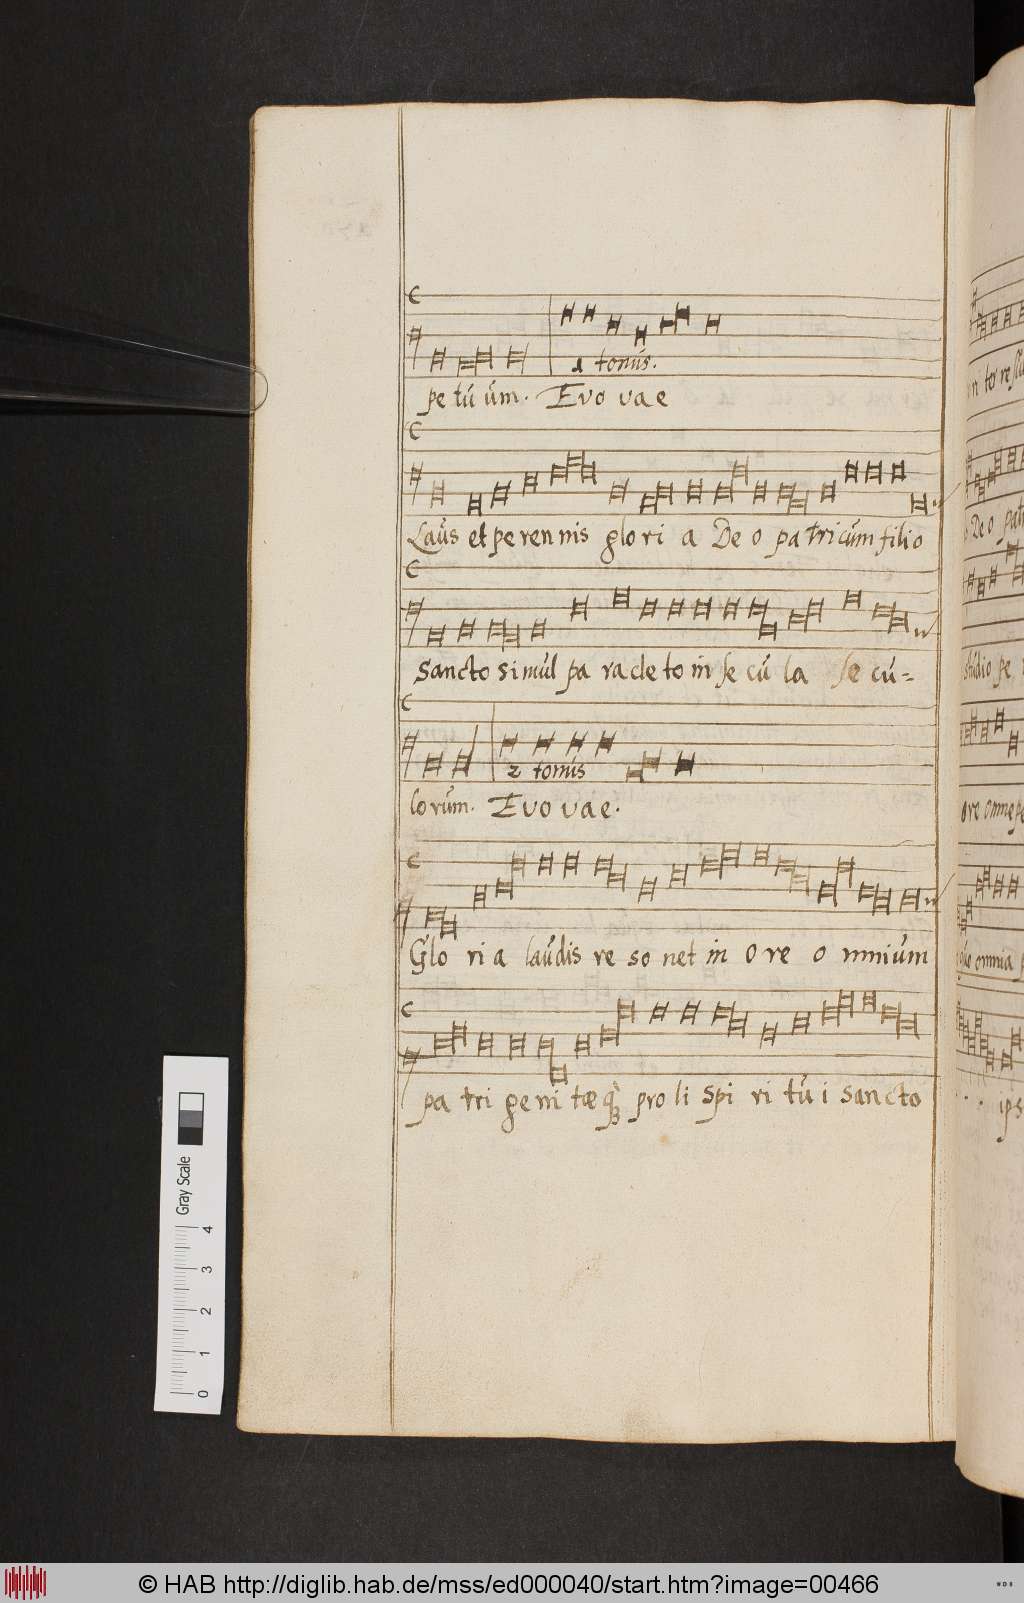 1 tonus.
pe tu um. Evo vae
Laus et pe ren nis glo ri a De o pa tri cum filio
Sancto simul pa racle to in se cu la se cu-
2 tonus
lo rum. Evo vae.
Glo ri a laudis re so net in o re o mnium
pa tri ge ni tæq; pro li spi ri tu i sancto
studio pe
ore omne
omnia
Gray Scale
4
3
2
1
0
© HAB http://diglib.hab.de/mss/ed000040/start.htm?image=00466